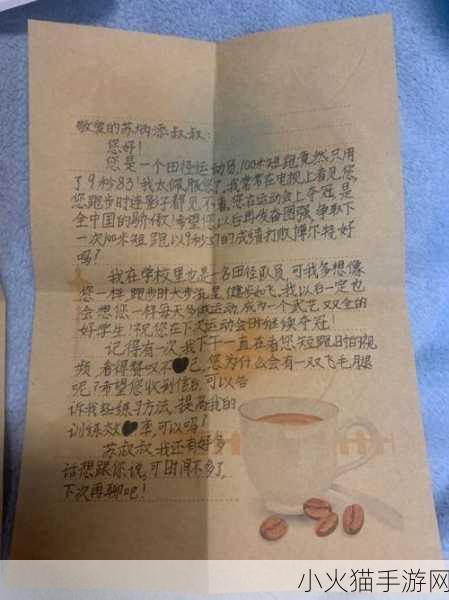 敬爱的苏炳添叔叔：
您好！
您是一个田径运动员，100米短跑竟然只用
了9秒83！我太佩服您了，我常常在电视上看见您，
您跑步时连影子都见不着。您在运动会上夺冠是
全中国的骄傲！希望您以后再发奋图强，争取下
一次100米短跑以9秒57的成绩打败博尔特，好
吗？
我在学校里也是一名田径队员，可我多想像
您一样，跑步时大步流星，健步如飞。我以后一定也
会想您一样每天多做运动，成为一个武艺双全的
好学生！祝您在下次运动会时继续夺冠！
记得有一次，我下午一直在看您短跑时的视
频，看得赞叹不己，您为什么会有一双飞毛腿
呢？希望您收到信后，可以告
诉我些练习方法，提高我的
训练效率，可以吗？
苏叔叔，我还有好多
话想跟您说，可时间不多了，
下次再聊吧！
小火猫手游网